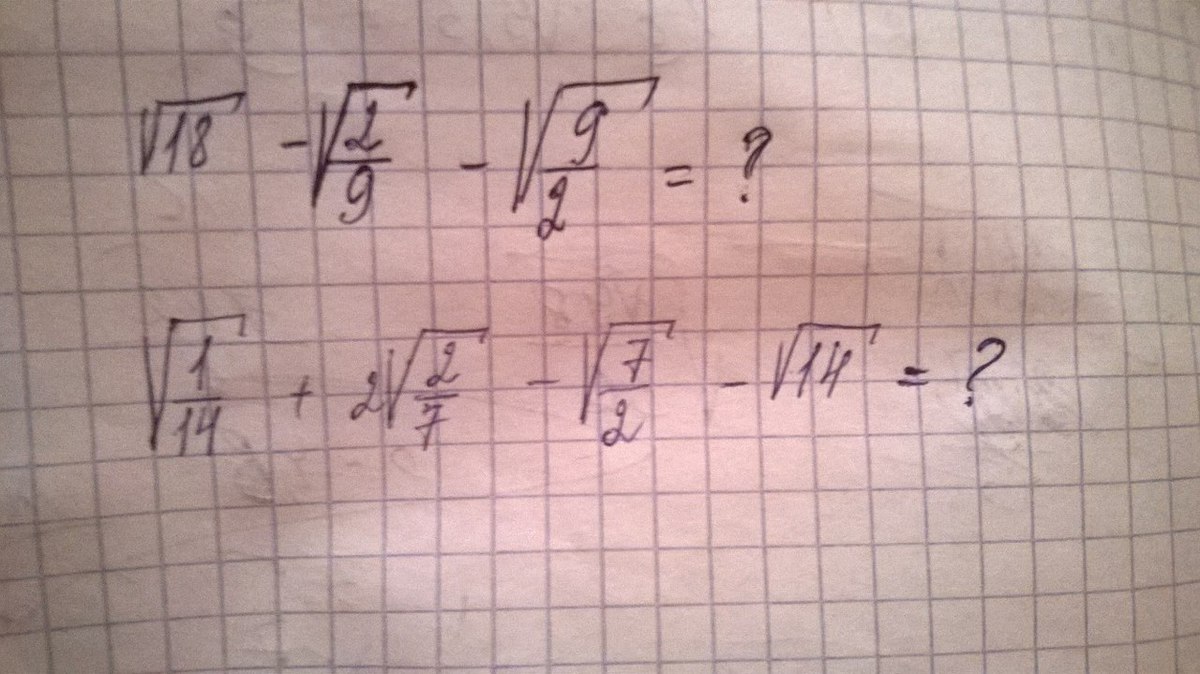 √18 - √(2/9) - √(9/2) = ?
√(1/14) + 2√(2/7) - √(7/2) - √14 = ?